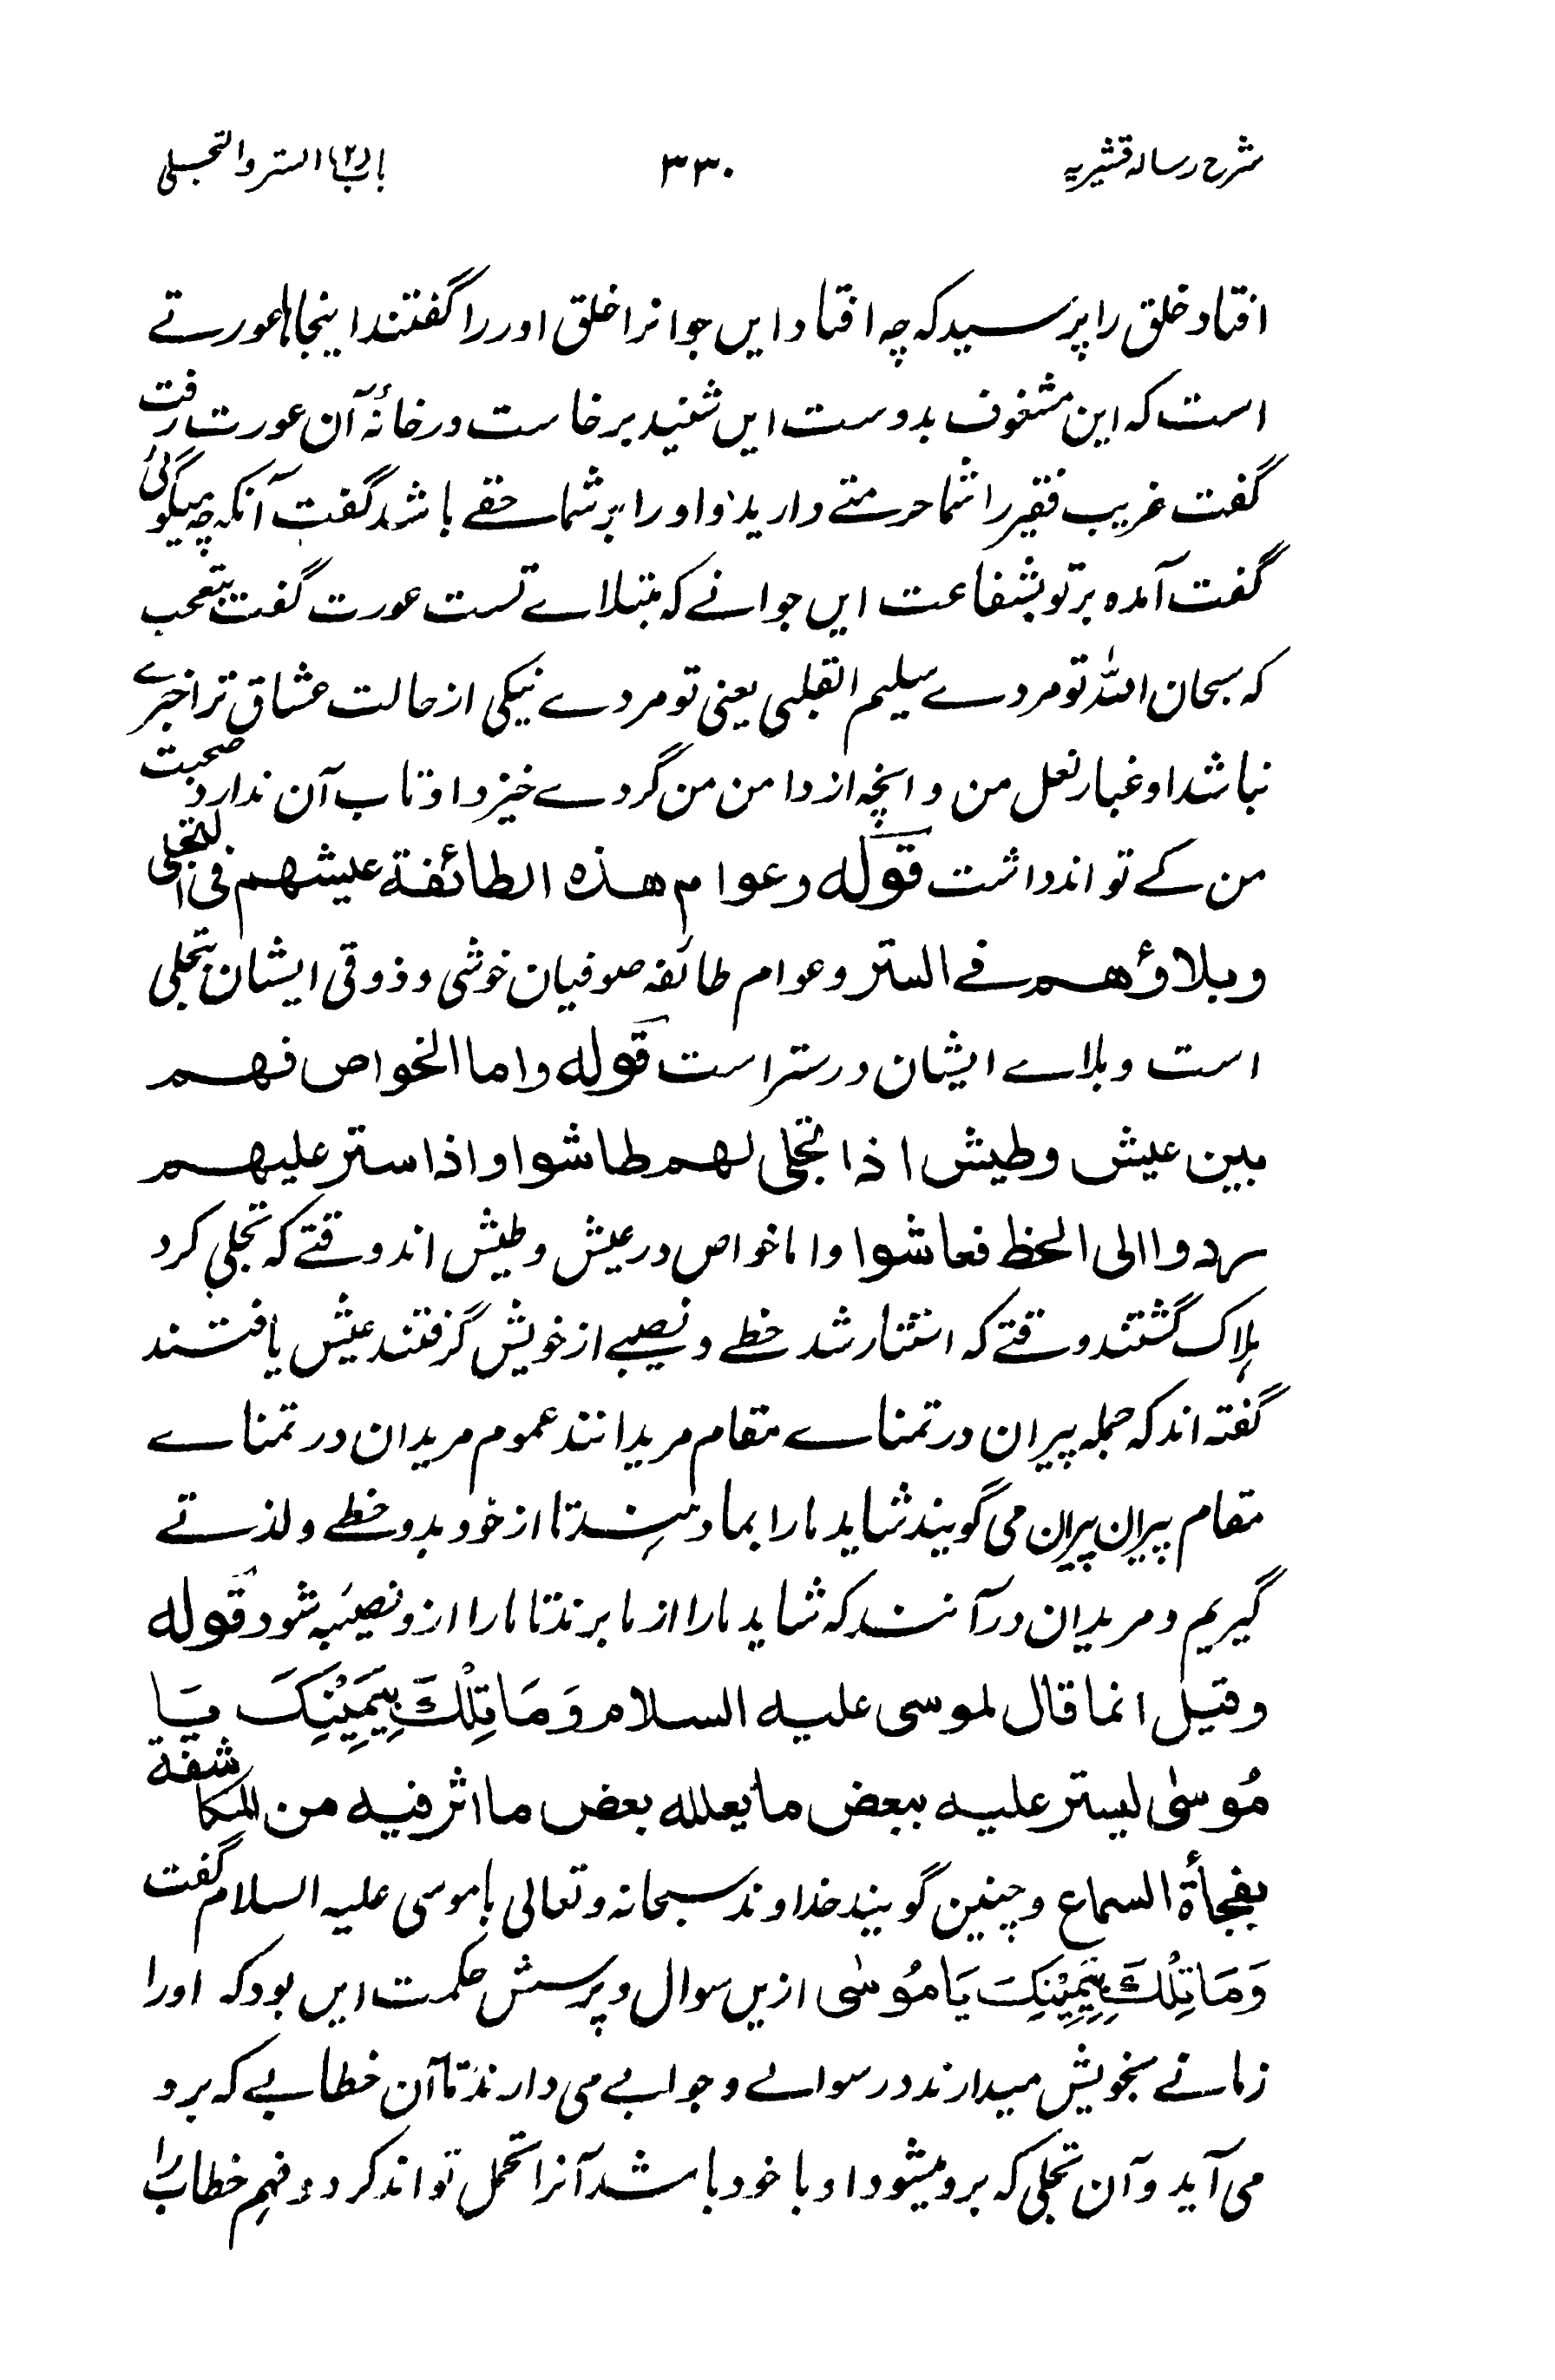 شرح رسالہ قشیریہ ۳۳۰ باب (۲) الستر والتجلی
افتاد خلق را پرسید که چه افتاد ایں جوانرا خلق اور را گفتند اینجاہا عورتے
است که این مشغوف بدوست ایں شنید برخاست در خانۂ آن عورت رفت
گفت غریب فقیر را شما حرمتے دارید و او را بر شما حقے باشد گفت آنکه چه میگوئی
گفت آمده بر تو بشفاعت ایں جوانے که مبتلاے تست عورت گفت بتعجب
که سبحان اللہ تو مردے سلیم القلبی یعنی تو مردے نیکی از حالت عشاق ترا خبرے
نباشد او غبار نعل من و انچه از دامن من گردے خیزد او تاب آن ندارد صحبت
من کے تواند داشت قوله وعوام هذه الطائفة عيشهم فی التجلی
وبلاؤهم فے الستر و عوام طائفه صوفیان خوشی و ذوقی ایشان بتجلی
است و بلاے ایشان در ستر است قوله واما الخواص فهم
بين عيش وطيش اذا تجلی لهم طاشوا واذا ستر عليهم
ردوا الی الحظ فعاشوا و اما خواص در عیش و طیش اند وقتے که تجلی کرد
ہلاک گشتند وقتے که استتار شد حظے و نصیبے از خویش گرفتند عیش یافتند
گفته اند که جمله پیران در تمناے مقام مریدانند عموم مریدان در تمناے
مقام پیران پیران می گویند شاید مارا بما دہند تا از خود بدو حظے و لذتے
گیریم و مریدان در آنند که شاید مارا از ما برند تا مارا ازو نصیبه شود قوله
وقيل انما قال لموسی عليه السلام وَمَا تِلْكَ بِيَمِيْنِكَ يَا
مُوسٰی ليستر عليه ببعض ما يعلله بعض ما اثر فيه من المكاشفة
بفجأة السماع و چنین گویند خداوند سبحانه و تعالی با موسی علیه السلام گفت
وَمَا تِلْكَ بِيَمِيْنِكَ يَا مُوْسٰی ازیں سوال و پرسش حکمت ایں بود که اورا
زمانے بخویش میدارند در سوالے و جوابے می دارند تا آن خطابے که برو
می آید و آن تجلی که برو میشود او با خود باشد آنرا تحمل تواند کرد و فهم خطاب را